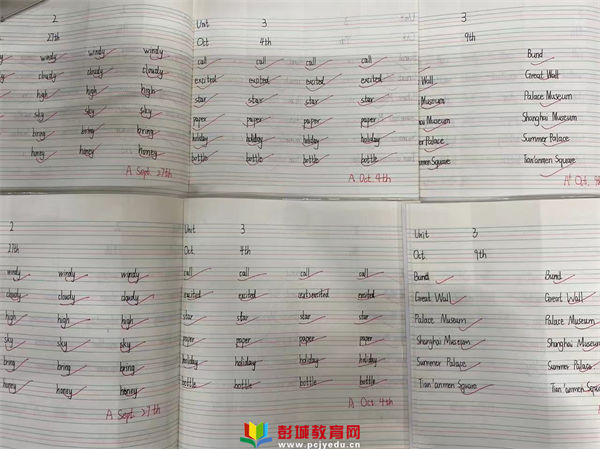 2
27th
windy windy windy
cloudy cloudy cloudy
high high high
sky sky sky
bring bring bring
honey honey honey
A Sept. 27th
Unit 3
Oct 4th
call call call call
excited excited excited excited
star star star star
paper paper paper paper
holiday holiday holiday holiday
bottle bottle bottle bottle
A Oct. 4th
3
9th
Bund
Wall Great Wall
Museum Palace Museum
Museum Shanghai Museum
Palace Summer Palace
Square Tian'anmen Square
A+ Oct.
2
27th
windy windy windy
cloudy cloudy cloudy
high high high
sky sky sky
bring bring bring
honey honey honey
A Sept 27th
Unit 3
Oct 4th
call call call call
excited excited excited
star star star star
paper paper paper paper
holiday holiday holiday holiday
bottle bottle bottle bottle
A Oct 4th
Unit 3
Oct. 9th
Bund Bund
Great Wall Great Wall
Palace Museum Palace Museum
Shanghai Museum Shanghai Museum
Summer Palace Summer Palace
Tian'anmen Square Tian'anmen Square
彭城教育网
www.pcjyedu.cn